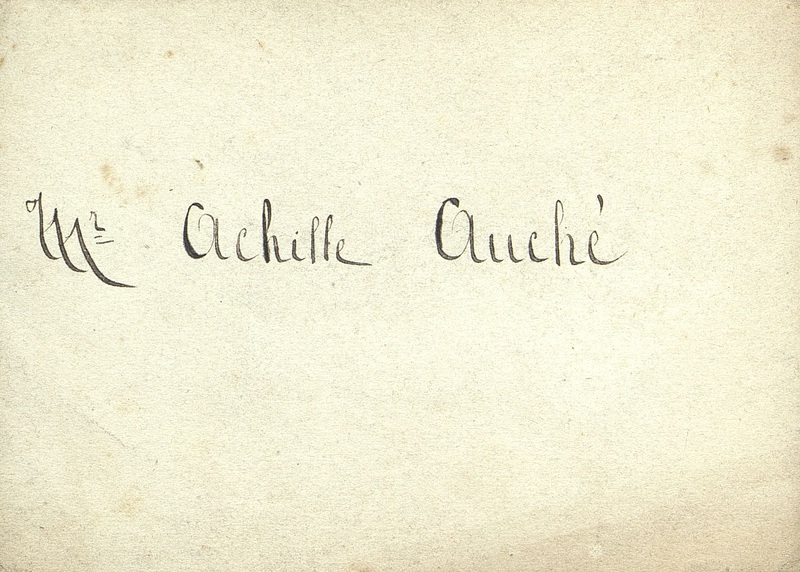 Mr Achille Auché